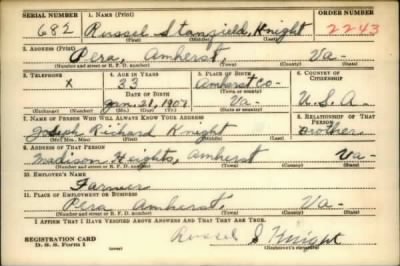 SERIAL NUMBER 1. NAME (Print) ORDER NUMBER
682 Russel Stanfield Knight 2243
(First) (Middle) (Last)
2. ADDRESS (Print)
Pera, Amherst, Va-
(Number and street or R. F. D. number) (Town) (County) (State)
3. TELEPHONE 4. AGE IN YEARS 5. PLACE OF BIRTH 6. COUNTRY OF CITIZENSHIP
X 33 Amherst Co-
DATE OF BIRTH (Town or county)
Jan. 21, 1907 Va- U.S.A.
(Exchange) (Number) (Mo.) (Day) (Yr.) (State or country)
7. NAME OF PERSON WHO WILL ALWAYS KNOW YOUR ADDRESS 8. RELATIONSHIP OF THAT PERSON
Joseph Richard Knight Brother
(Mr., Mrs., Miss) (First) (Middle) (Last)
9. ADDRESS OF THAT PERSON
Madison Heights, Amherst Va-
(Number and street or R. F. D. number) (Town) (County) (State)
10. EMPLOYER'S NAME
Farmer
11. PLACE OF EMPLOYMENT OR BUSINESS
Pera Amherst, Va-
(Number and street or R. F. D. number) (Town) (County) (State)
I AFFIRM THAT I HAVE VERIFIED ABOVE ANSWERS AND THAT THEY ARE TRUE.
REGISTRATION CARD Russel S Knight
D. S. S. Form 1 (Registrant's signature)